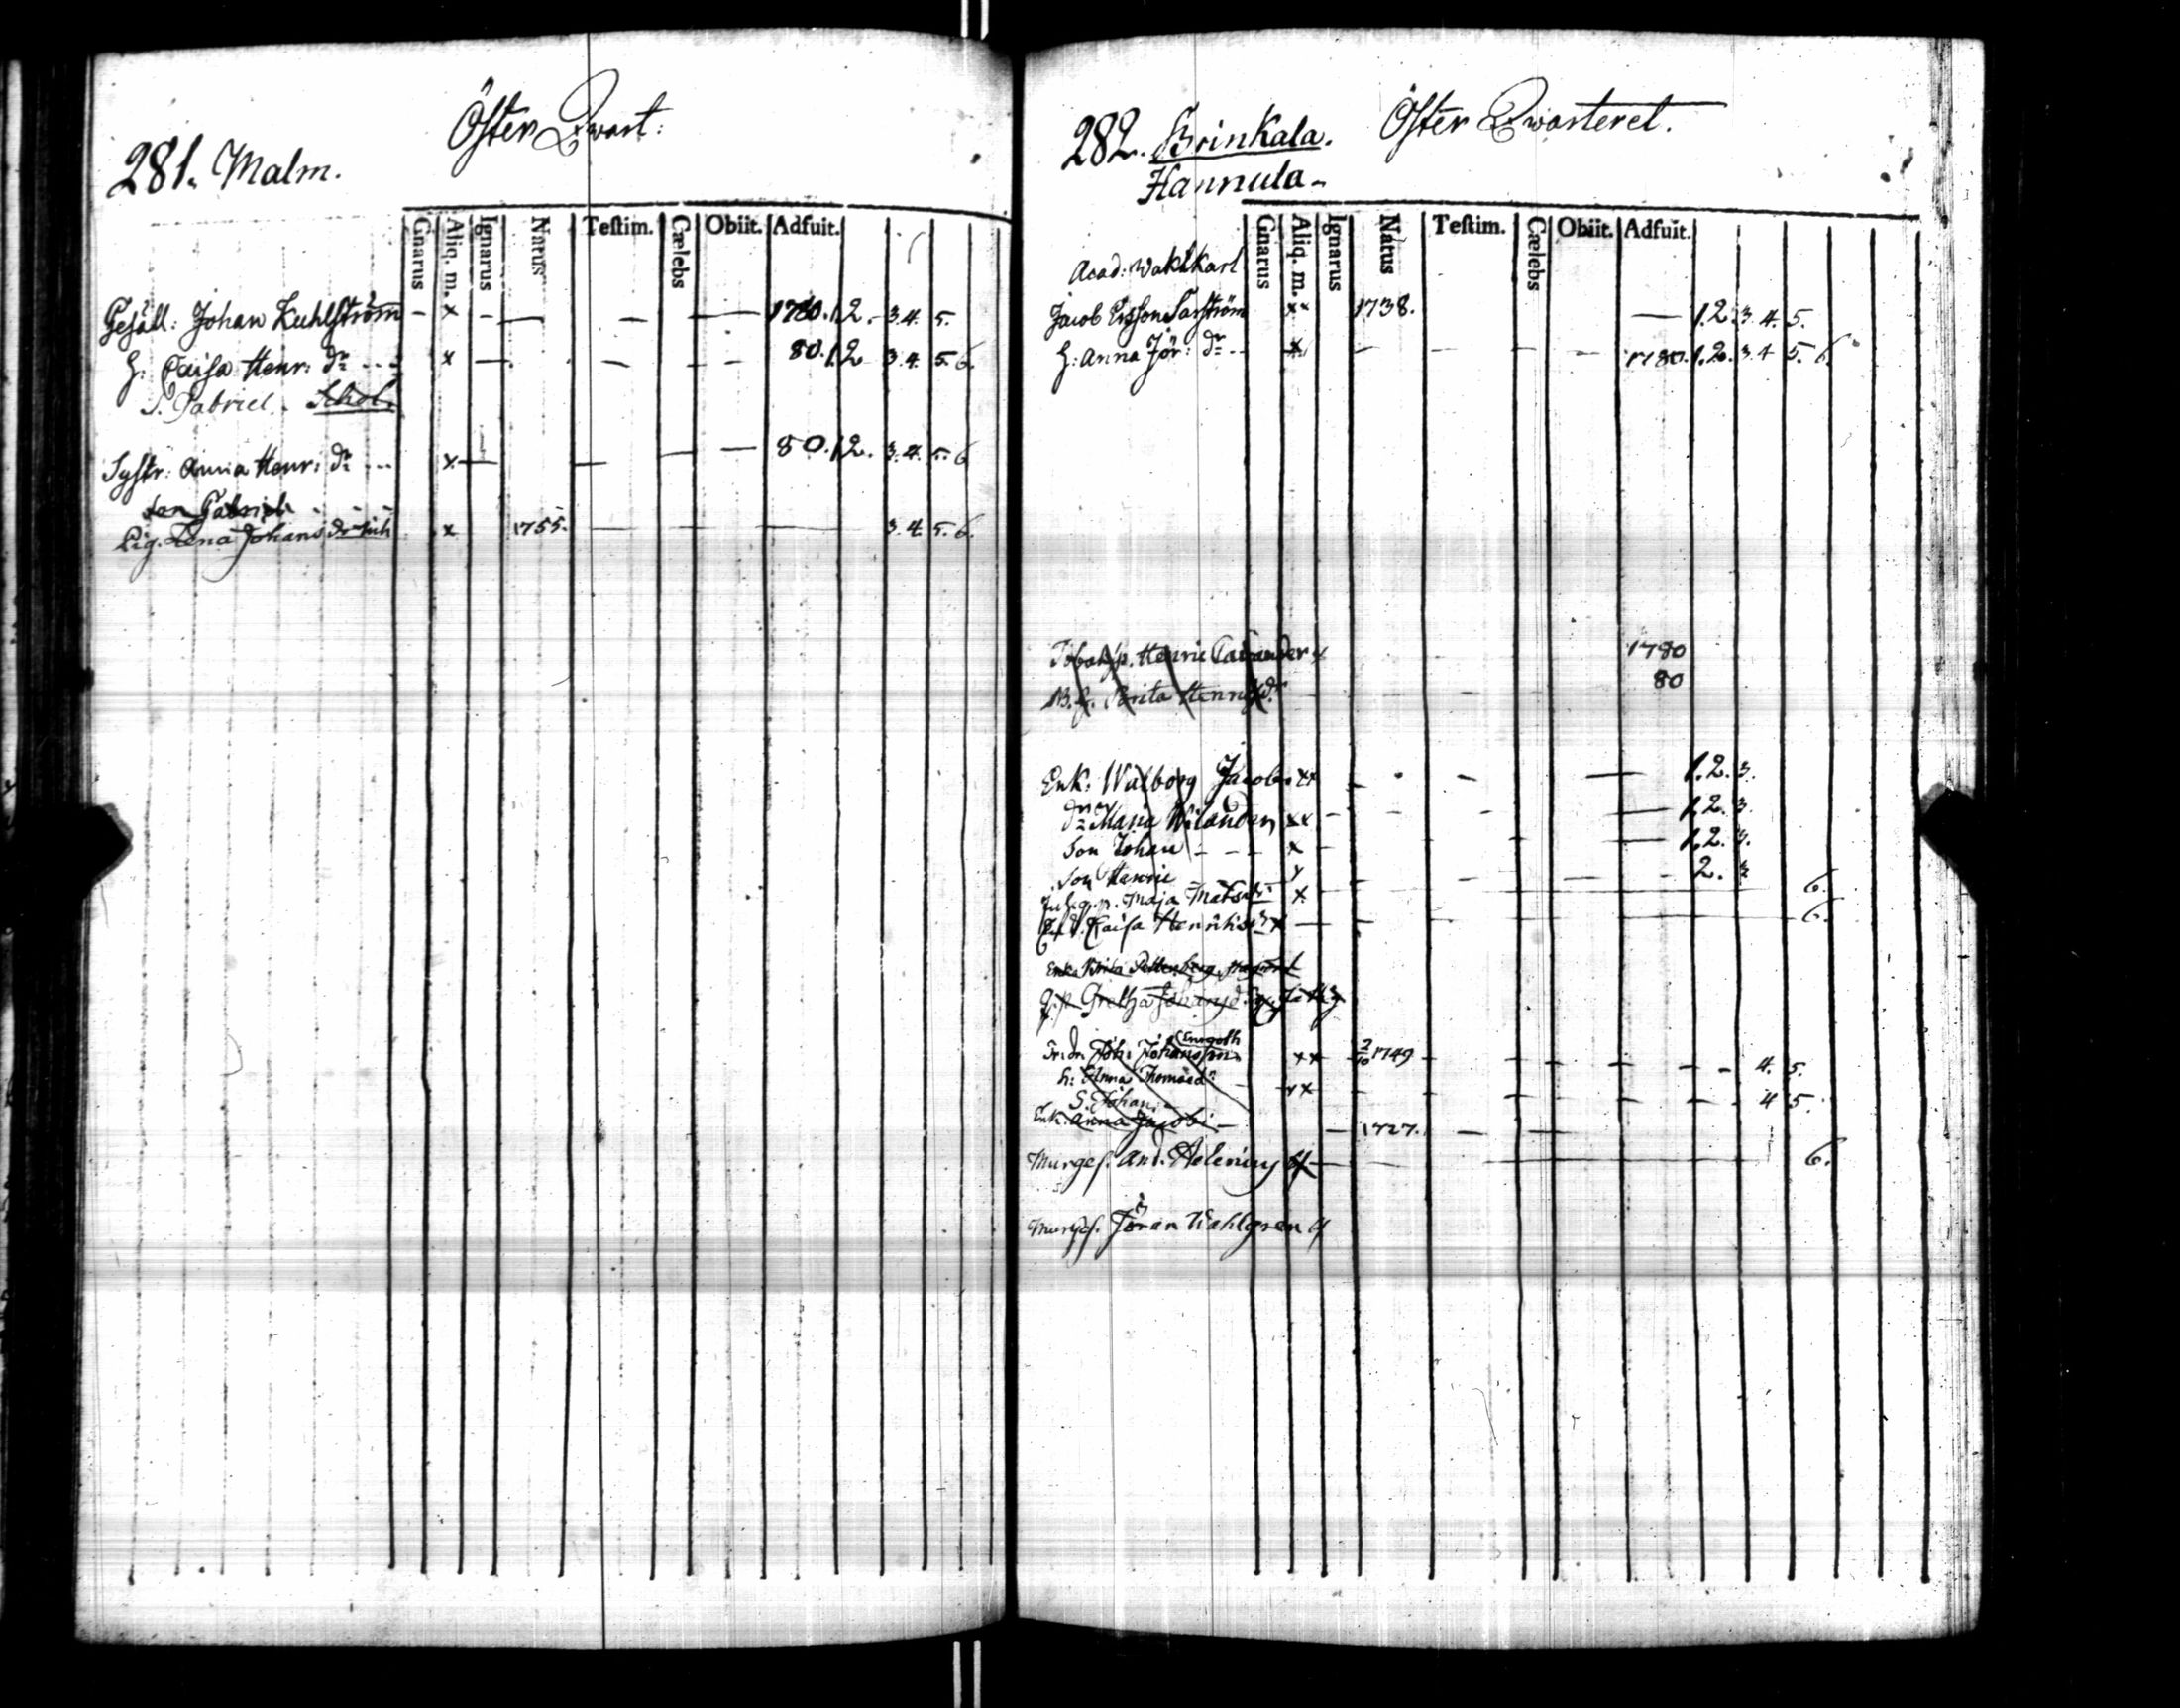 Öster Qwart:
281. Malm.
Gnarus Aliq. m. Ignarus Natus Testim. Cælebs Obiit. Adfuit.
Gesäll: Johan Kuhlström - x - — - — 1780. 1 2. 3. 4. 5.
H: Caisa Henr: dr x — - - - 80. 1 2 3. 4. 5. 6.
S. Gabriel. Schol.
Systr: Anna Henr: dr x — — — — 80. 1 2. 3. 4. 5. 6
Son Gabriel
Pig. Lena Johans dr x 1755. — 3. 4. 5. 6.
Öster Qwarteret.
282. Brinkala.
Hannula -
Gnarus Aliq. m. Ignarus Natus Testim. Cælebs Obiit. Adfuit.
Acad: Waktkarl
Jacob Ersson xx 1738. — 1. 2. 3. 4. 5.
H: Anna Jör: dr x — - — 1780. 1. 2. 3. 4 5. 6.
Henric x 1780
Brita Henr dr 80
Enk: Walborg Jacobs xx - - — 1. 2. 3.
dr Maja Wilander xx - - — 1. 2. 3.
Son Johan - - - x - — 1. 2. 3.
Son Henric 2. 3
Maja Mats dr x 6.
Caisa Henriks dr x — - 6.
Enka Brita
Gretha
Joh: Johansson xx 2/10 1749 - - - 4. 5.
h: Anna Thomæ dr xx - - - 4 5.
S. Johan
Enk. Anna Jacobs - 1727. — —
Murges. And. Helenius — 6.
Murges. Jöran Wahlgren